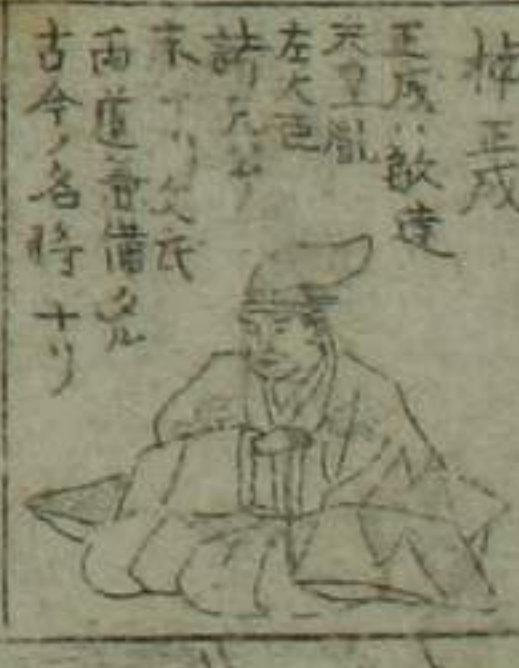 楠正成
正成ハ敏達
天皇胤
左大臣
諸兄公ノ
末ナリ文武
両道兼備タル
古今ノ名将ナリ